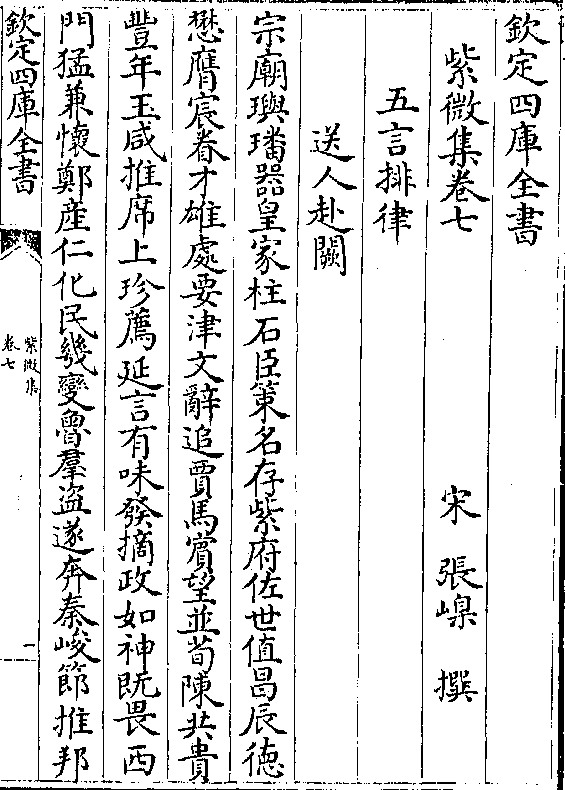 欽定四庫全書
紫微集卷七
宋 張嵲 撰
五言排律
送人赴闕
宗廟璵璠器皇家柱石臣策名存紫府佐世值昌辰德
懋膺宸眷才雄處要津文辭追賈馬賓望並荀陳共貴
豐年玉咸推席上珍薦延言有味發摘政如神既畏西
門猛兼懷鄭産仁化民幾變魯羣盜遂奔秦峻節推邦
欽定四庫全書
紫微集
卷七
一